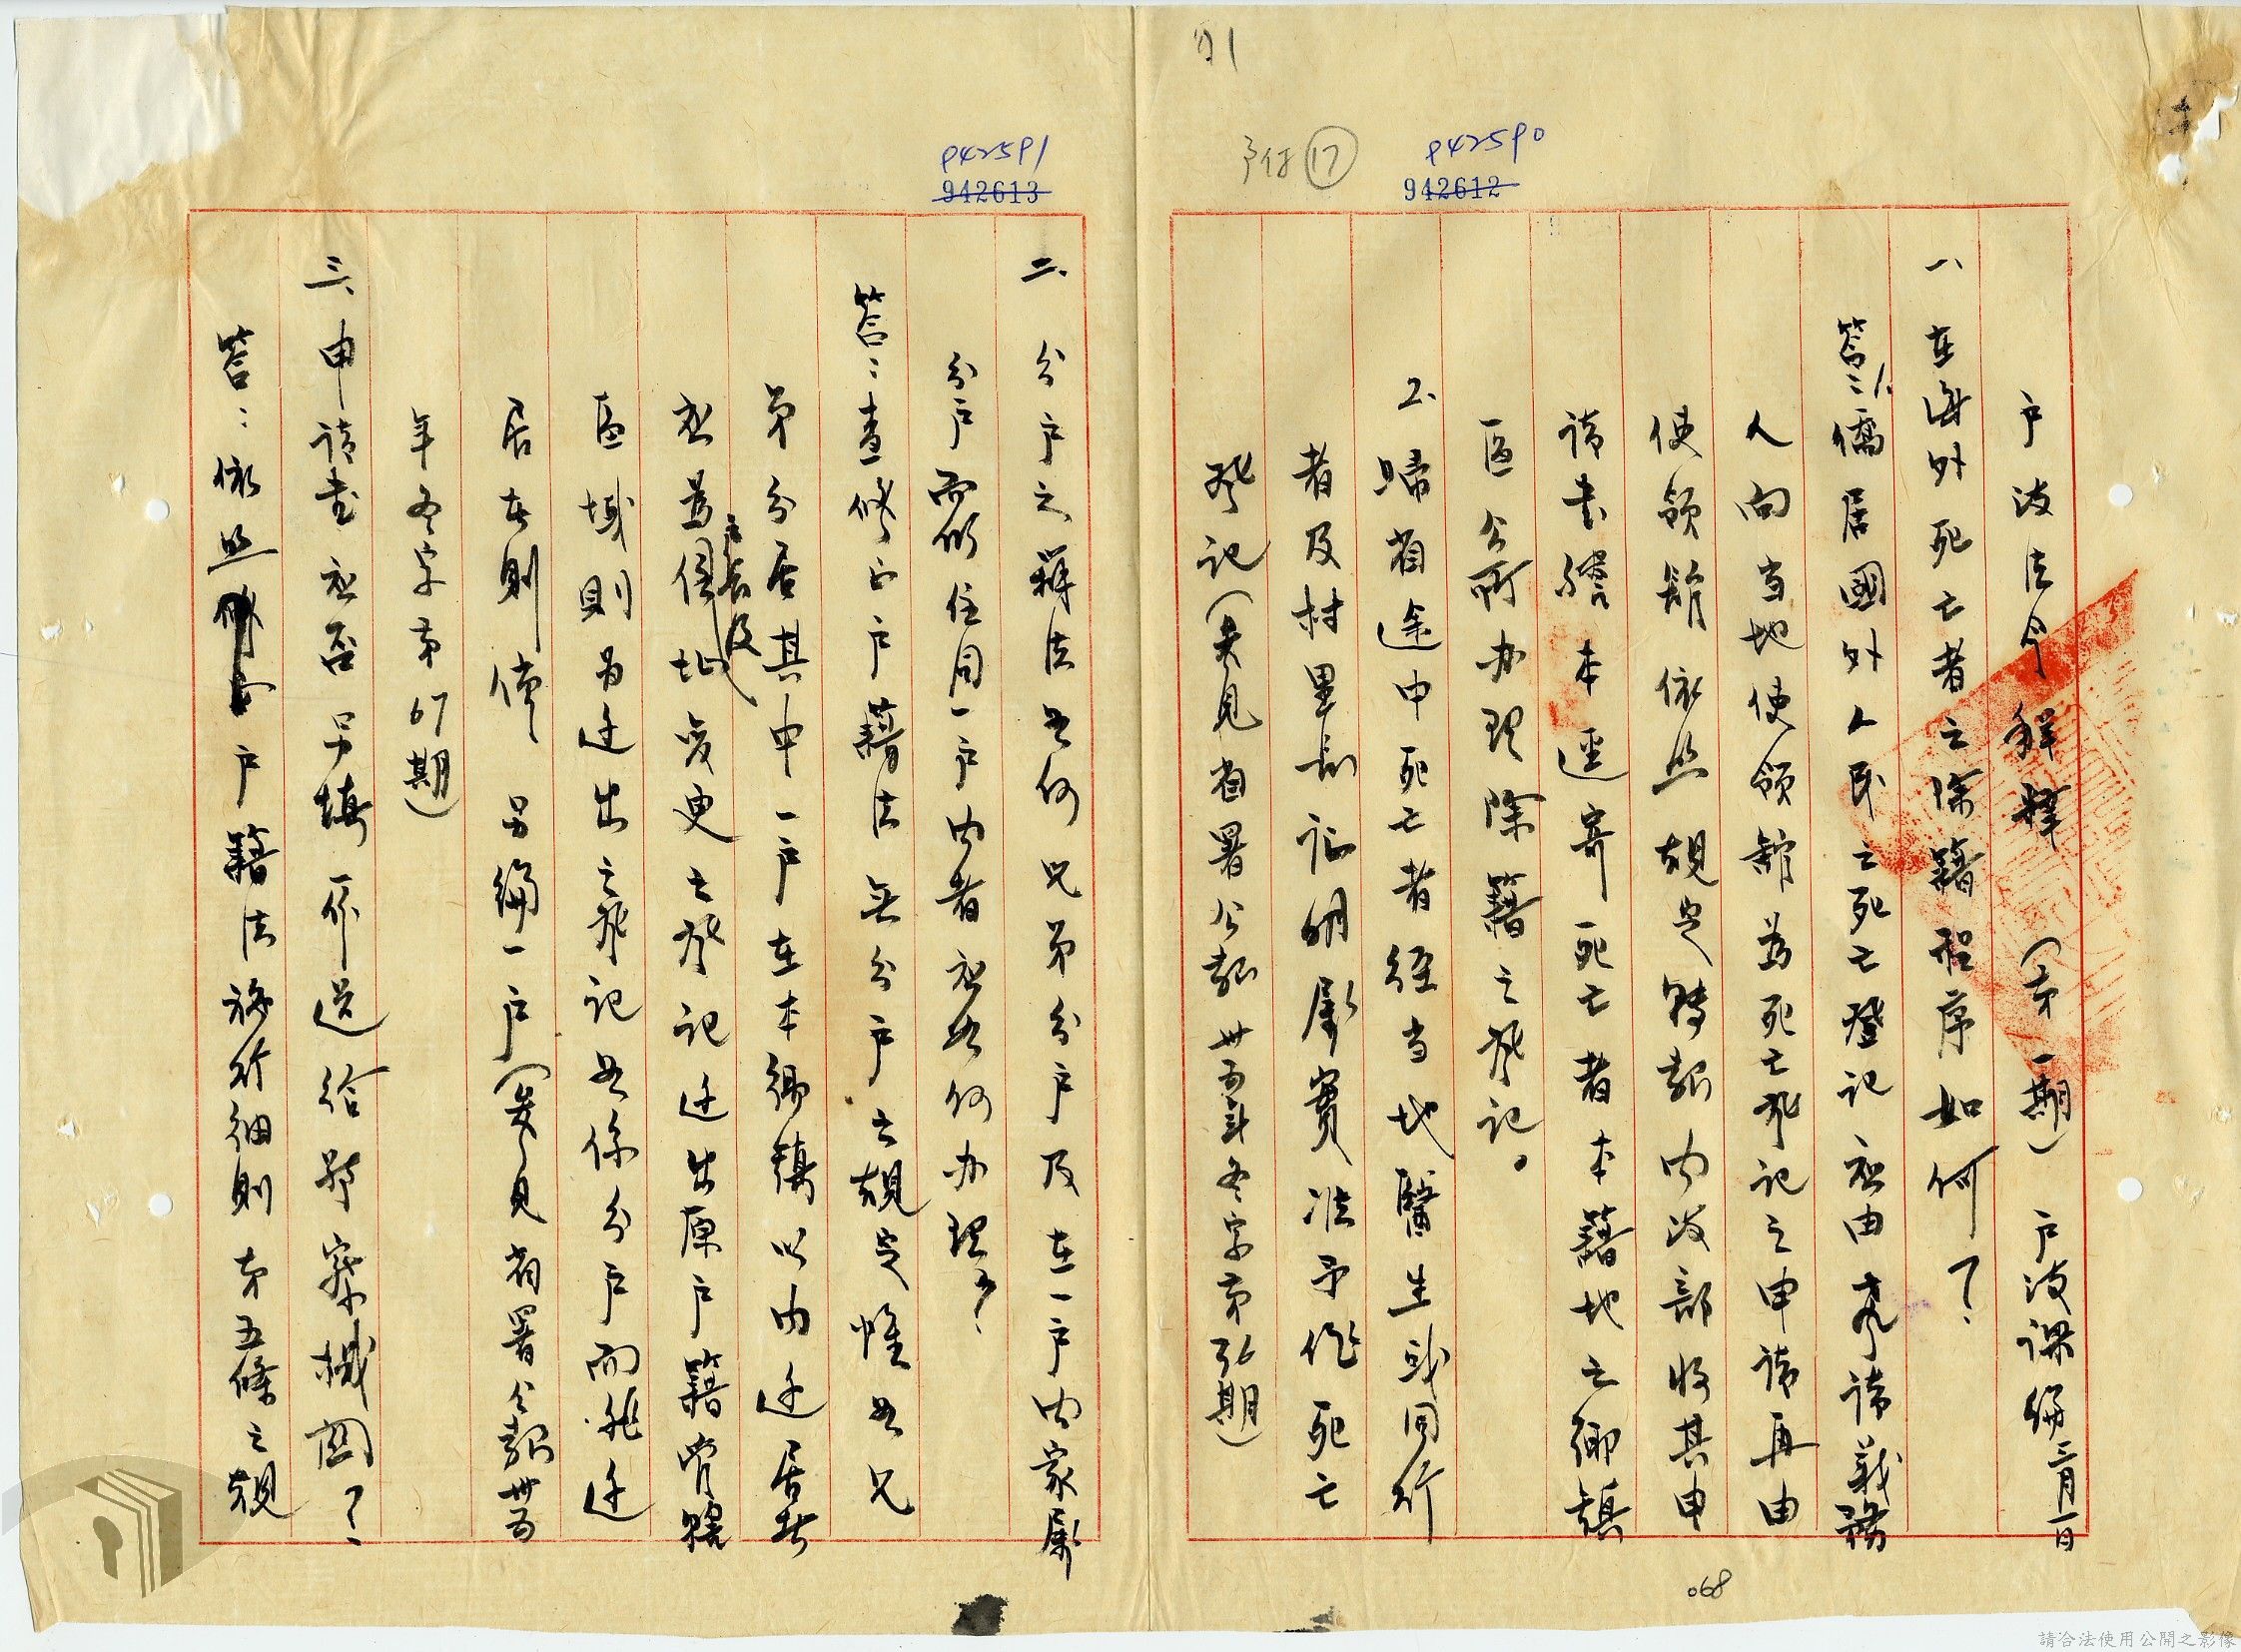 91
戶付 17
942590
942612
戶政法令解釋（第一期）戶政課編 三月一日
一、在海外死亡者之除籍程序如何？
答：1.僑居國外人民之死亡登記應由声請義務
人向当地使領館為死亡登記之申請再由
使領館依照規定轉報內政部將其申
請書謄本逕寄死亡者本籍地之鄉鎮
區公所办理除籍之登記。
2.歸省途中死亡者經当地醫生或同行
者及村里長証明屬實准予作死亡
登記（見省署公報卅五年冬字第56期）
942591
942613
二、分戶之辦法如何兄弟分戶及在一戶內家屬
分戶而仍住同一戶內者应如何办理？
答：查修正戶籍法無分戶之規定惟如兄
弟分居其中一戶在本鄉鎮以內迁居者
应為住址变更之登記迁出原戶籍管轄
戶長及
區域則為迁出之登記如係分戶而非迁
居者則僅另編一戶（見省署公報卅五
年冬字第67期）
三、申請書应否另填一份送給警察機関？
答：依照戶籍法施行細則第五條之規
068
請合法使用公開之影像